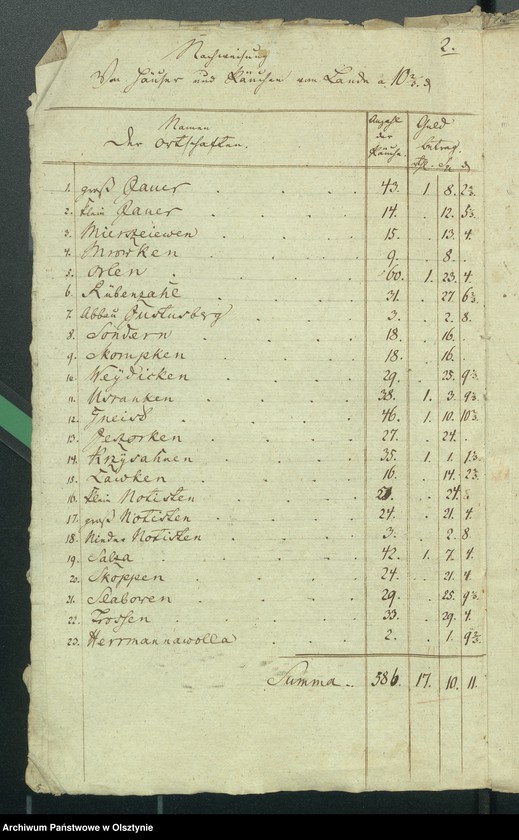 2.
Nachweisung
Von Häuser und Räuchen vom Lande a. 10 2/3 d
Namen
der Ortschaften.
Anzahl
der
Räuche.
Geld
betrag.
rtl. Sg. d
1. groß Jauer . . . . 43. 1. 8. 2 2/3.
2. klein Jauer . . . . 14. . 12. 5 1/3.
3. Mierszeiewen . . . . 15. . 13. 4.
4. Mrowken . . . . 9. . 8. .
5. Orlen . . . . 60. 1. 23. 4.
6. Rübenzahl . . . . 31. . 27. 6 2/3.
7. Abbau Justusberg . . . 3. . 2. 8.
8. Sondern . . . . 18. . 16. .
9. Skompken . . . . 18. . 16. .
10. Weydicken . . . . 29. . 25. 9 1/3.
11. Usranken . . . . 38. 1. 3. 9 1/3.
12. Gneist . . . . 46. 1. 10. 10 2/3.
13. Jesiorken . . . . 27. . 24. .
14. Krzysahnen . . . . 35. 1. 1. 1 1/3.
15. Lawken . . . . 16. . 14. 2 2/3.
16. klein Notisten . . . .
17. groß Notisten . . . . 24. . 21. 4.
18. Nieder Notisten . . . 3. . 2. 8.
19. Salza . . . . 42. 1. 7. 4.
20. Skoppen . . . . 24. . 21. 4.
21. Slabowen . . . . 29. . 25. 9 1/3.
22. Trossen . . . . 33. . 29. 4.
23. Herrmannawolla . . . 2. . 1. 9 1/3.
Summa .. 586. 17. 10. 11.
Archiwum Państwowe w Olsztynie